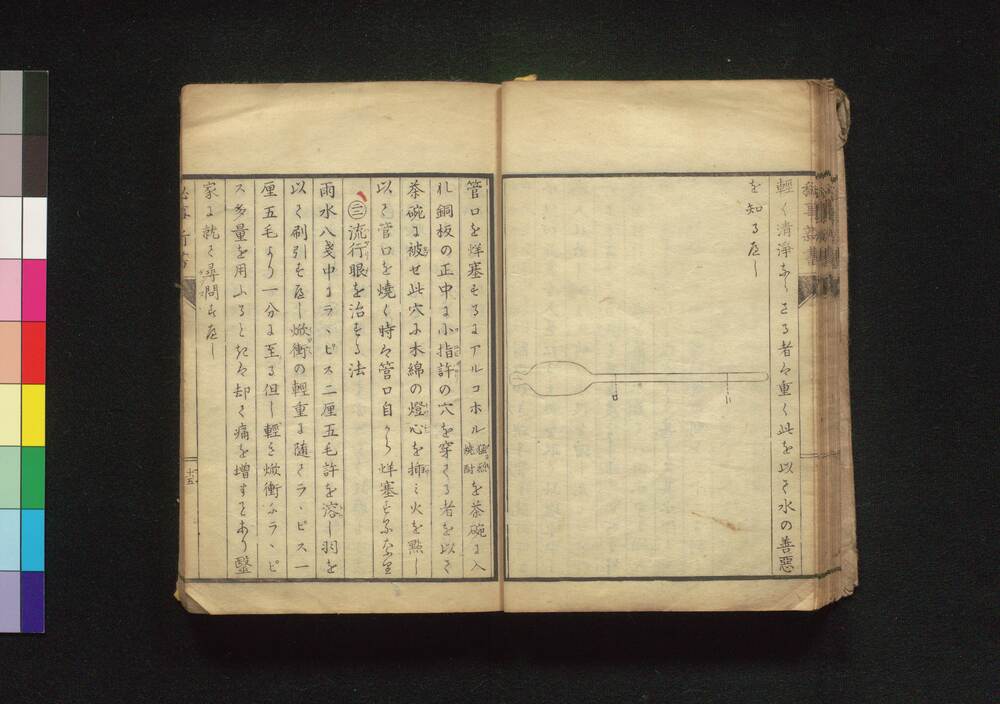 輕く清淨ならざる者は重く此を以て水の善惡
を知る可し
ロ
ハ
管口を烊塞するはアルコホル 極純燒酎 を茶碗に入
れ銅板の正中に小指許の穴を穿てる者を以て
茶碗に被せ此穴に木綿の燈心を挿み火を點し
以て管口を燒く時は管口自から烊塞するなり
㊂流行眼を治する法
雨水八戔中にラヽピス二厘五毛許を溶し羽を
以て刷引す可し焮衝の輕重に隨てラヽピス一
厘五毛より一分に至る但し輕き焮衝にラヽピ
ス多量を用ふるときは却て痛を增すことあり醫
家に就て尋問す可し
十五